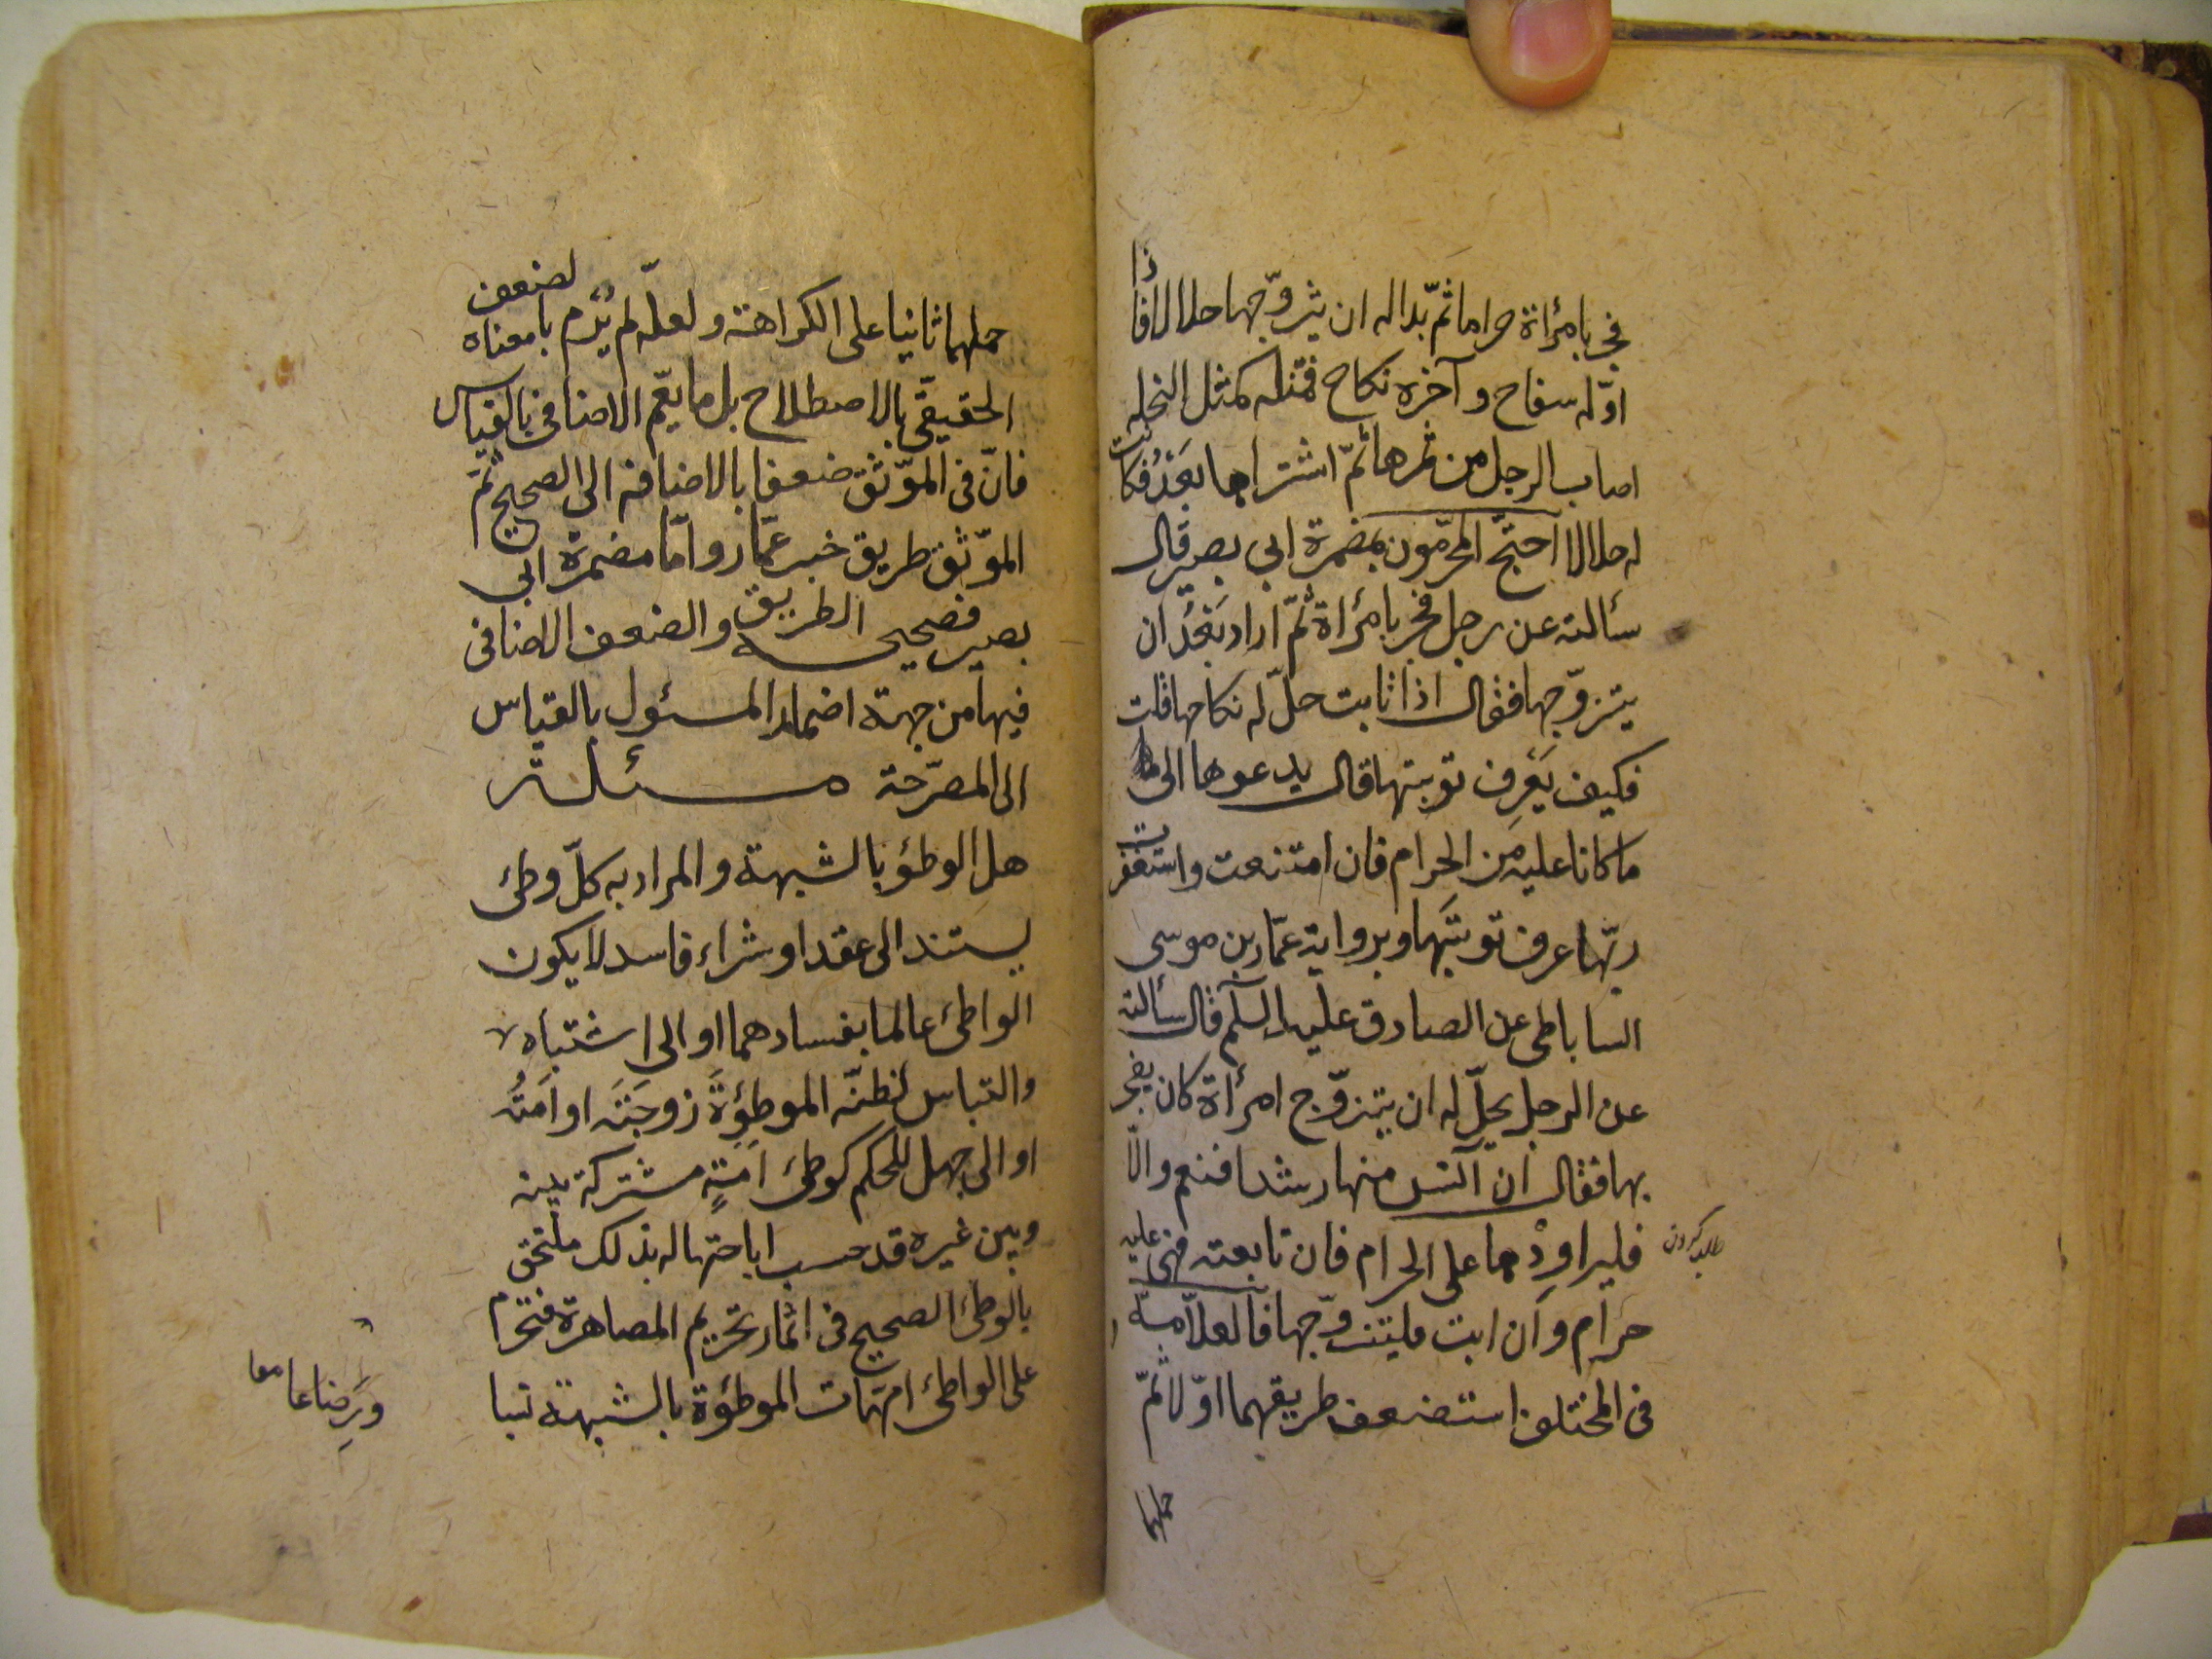 فجر بامرأة حراما ثمّ بدا له ان يتزوّجها حلالا فاذا
اوّله سفاح وآخره نكاح فمثله كمثل النخله
اصاب الرجل من ثمرها ثمّ اشتراها بعَدُ فكانت
له حلالا احتجّ المحرّمون بمضمرة ابى بصير قال
سألته عن رجل فجر بامرأة ثمّ اراد بَعْدُ ان
يتزوّجها فقال اذا تابت حلّ له نكاحها قلت
فكيف يَعْرِف توبتها قال يدعوها الى
ما كانا عليه من الحرام فان امتنعت واستغفرت
ربّها عرف توبتَها وبرواية عمّار بن موسى
الساباطى عن الصادق عليه السلم قال سألته
عن الرجل يحلّ له ان يتزوّج امرأة كان يفجر
بها فقال ان آنس منها رشدا فنعم والّا
فليراوِدْها على الحرام فان تابعته فهى عليه
طلب كردن
حرام وان ابت فليتزوّجها فالعلّامة
فى المختلف استضعف طريقهما اوّلا ثمّ
حملهما
حملهما ثانيا على الكراهة ولعلّه لم يُرِم بالضعف معناه
الحقيقىّ بالاصطلاح بل ما يعّم الاضافى بالقياس
فانّ فى الموّثق ضعفا بالاضافة الى الصحيح ثمّ
الموّثق طريق خبر عمّار وامّا مضمرة ابى
بصير فصحيحة الطريق والضعف الاضافى
فيها من جهة اضمار المسئول بالقياس
الى المصرّحة مسئلة
هل الوطؤ بالشبهة والمراد به كلّ وطئ
يستند الى عقد او شراء فاسد لا يكون
الواطئ عالما بفسادهما او الى اشتباه
والتباس لظنّه الموطؤةَ زوجَتَه او اَمَتَه
او الى جهل للحكم كوطئ اَمَةٍ مشتركة بينه
وبين غيره قد حسب اباحتها له بذلك ملتحق
بالوطئ الصحيح فى اثمار تحريم المصاهرة فتحرم
على الواطئ امّهات الموطؤة بالشبهة نسبا
ورضاعا معا